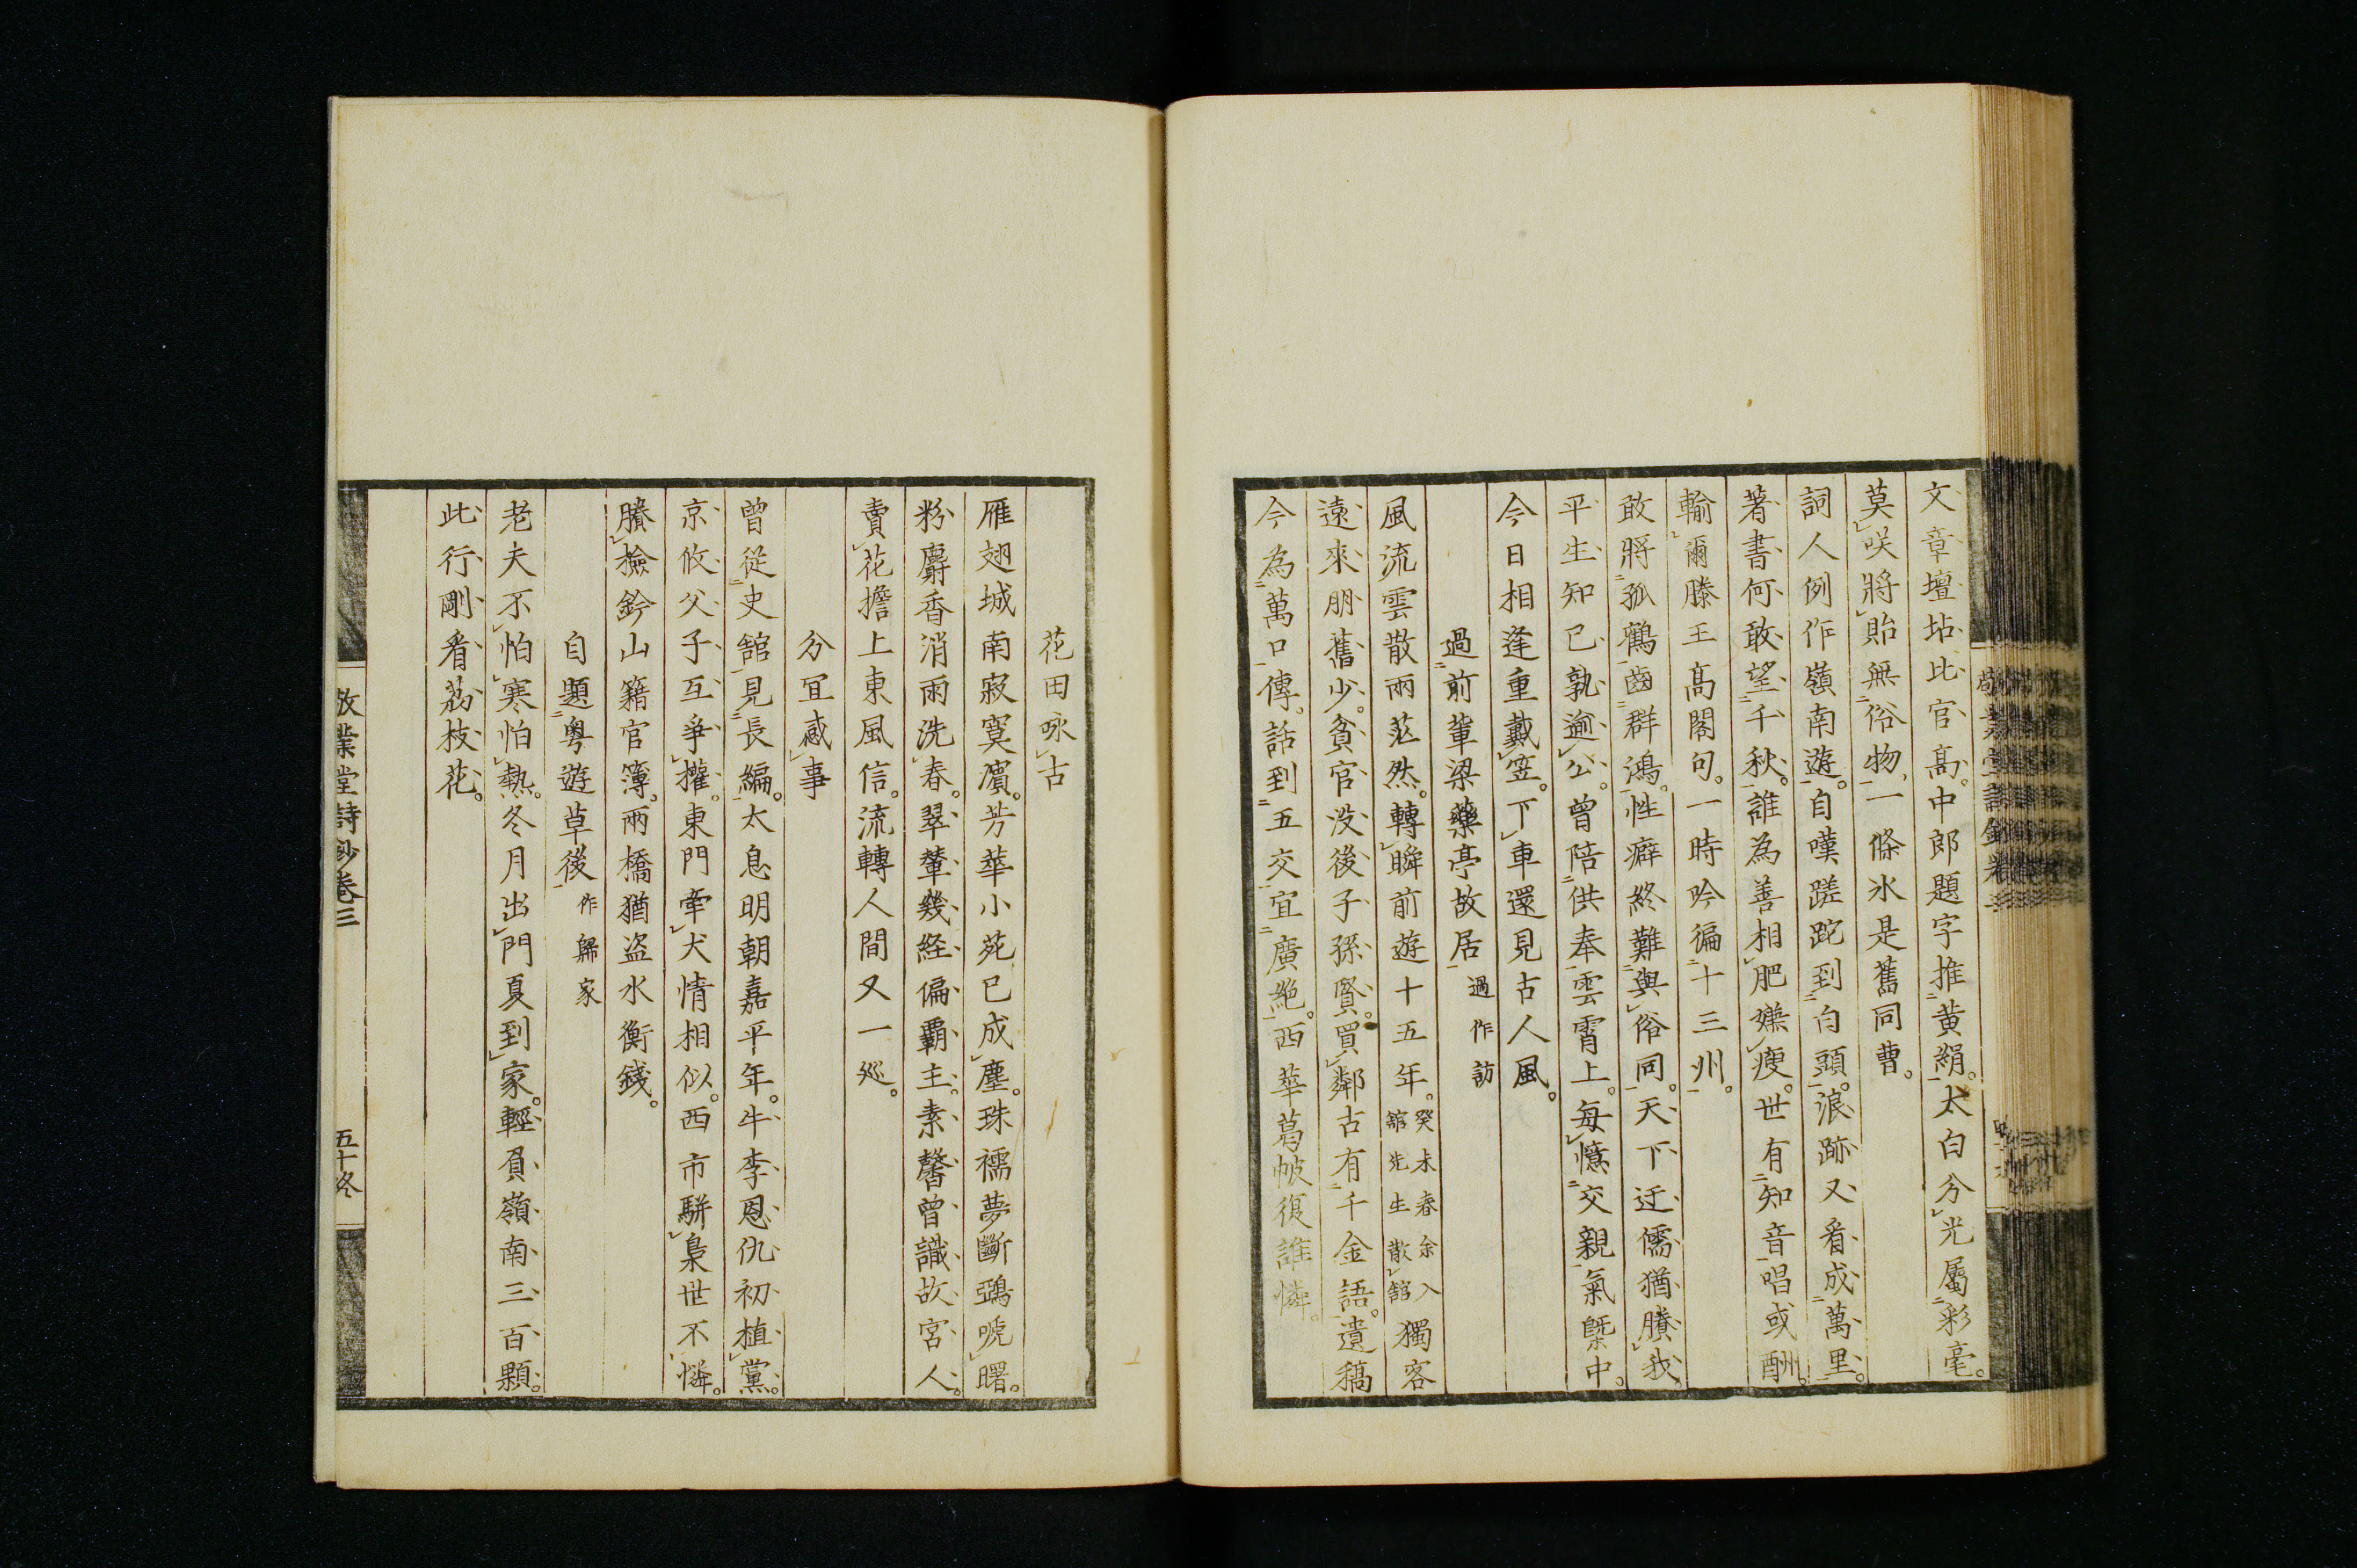 文章壇坫比官高。中郎題字推黄絹。太白分光屬彩毫。
莫咲將貽無俗物一條氷是舊同曹。
詞人例作嶺南遊。自嘆蹉跎到白頭。浪跡又看成萬里。
著書何敢望千秋。誰為善相肥嫌瘦。世有知音唱或酬。
輸爾滕王髙閣句。一時吟徧十三州。
敢將孤鶴齒群鴻。性癖終難與俗同。天下迂儒猶賸我
平生知己孰逾公。曾陪供奉雲霄上。每懷交親氣槩中。
今日相逢重戴笠。下車還見古人風。
過前輩梁藥亭故居 過作訪
風流雲散兩茫然。轉瞬前遊十五年。癸未春余入舘先生散舘獨客
遠來朋舊少。貧官没後子孫賢。買鄰古有千金語。遺稿
今為萬口傳。話到五交宜廣絶。西華葛帔復誰憐。
花田咏古
雁翅城南寂寞濵。芳華小苑已成塵。珠襦夢斷鵶唬曙。
粉麝香消雨洗春。翠輦幾経偏覇主。素馨曾識故宮人。
賣花擔上東風信。流轉人間又一巡。
分冝感事
曾從史舘見長編。太息明朝嘉平年。牛李恩仇初植黨。
京攸父子互爭權。東門牽犬情相似。西市駢梟世不憐。
賸撿鈐山籍官簿。兩橋猶盗水衡錢。
自題粤遊草後 作歸家
老夫不怕寒怕熱。冬月出門夏到家。輕負嶺南三百顆。
此行剛看荔枝花。
敬業堂詩鈔卷三
五十終